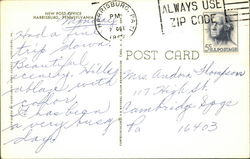 NEW POST OFFICE
HARRISBURG, PENNSYLVANIA
HARRISBURG, PA.
PM
ALWAYS USE
ZIP CODE
POST CARD
Had a fine
trip down.
Beautiful
scenery. Hills
ablaze with
color.
Has been
a very busy
day.
Mrs. Audra Thompson
117 High St.
Cambridge Spgs
Pa 16403